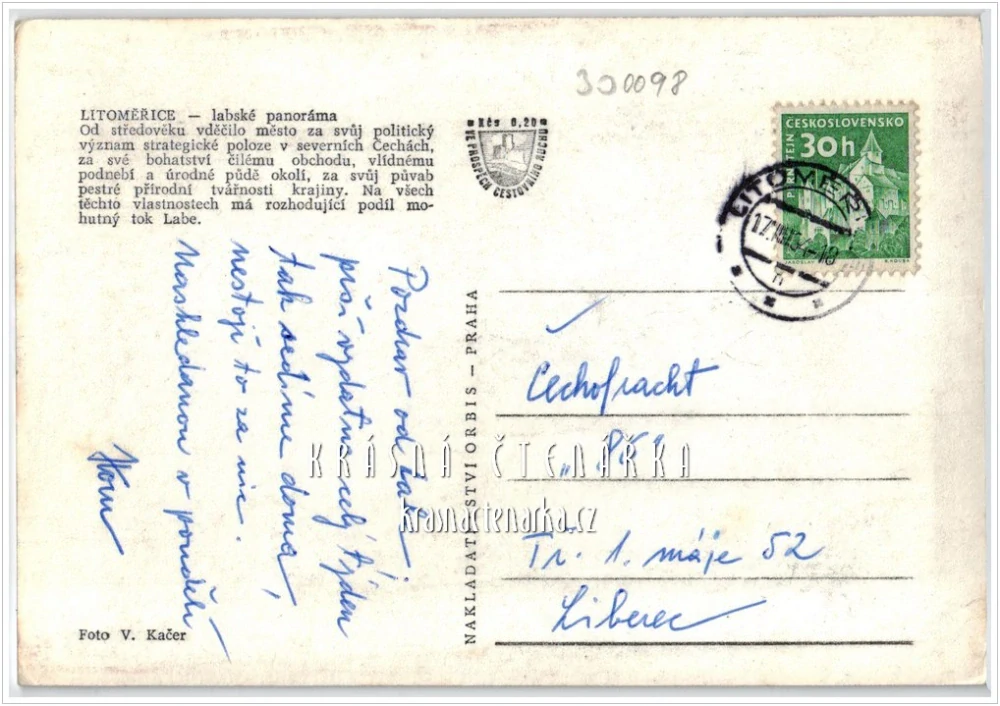 300098
LITOMĚŘICE — labské panoráma
Od středověku vděčilo město za svůj politický
význam strategické poloze v severních Čechách,
za své bohatství čilému obchodu, vlídnému
podnebí a úrodné půdě okolí, za svůj půvab
pestré přírodní tvářnosti krajiny. Na všech
těchto vlastnostech má rozhodující podíl mo-
hutný tok Labe.
Kčs 0,20
VE PROSPĚCH CESTOVNÍHO RUCHU
ČESKOSLOVENSKO
30h
PERNŠTEJN
LITOMĚŘI
Pozdrav od Labe.
prší vydatně celý týden
tak sedíme doma,
nestojí to za nic.
Naschledanou v pondělí
NAKLADATELSTVÍ ORBIS — PRAHA
Čechofracht
Tř. 1. máje 52
Liberec
KRÁSNÁ ČTENÁŘKA
krasnactenarka.cz
Foto V. Kačer